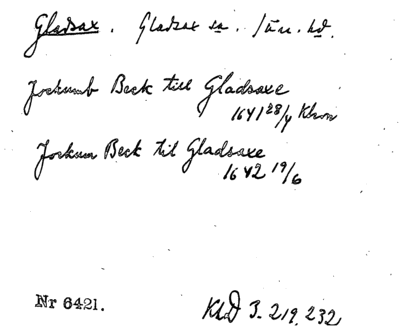 Gladsax. Gladsax sn. Järr. hd.
Jockumb Beck till Gladsaxe
1641 28/4 Khvn
Jockum Beck til Gladsaxe
1642 19/6
Nr 6421.
KhD 3. 219, 232